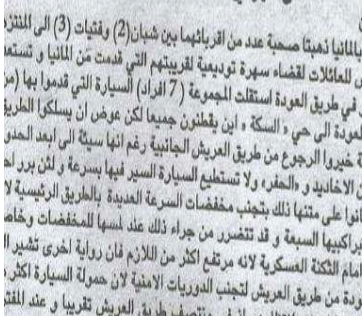 بالمانيا ذهبتا صحبة عدد من اقربائهما بين شبان(2) وفتيات (3) الى المنتزه
للعائلات لقضاء سهرة توديعية لقريبتهم التي قدمت من المانيا و تستعد
في طريق العودة استقلت المجموعة (7 افراد) السيارة التي قدموا بها (من
عودة الى حي « السكة » اين يقطنون جميعا لكن عوض ان يسلكوا الطريق
خيروا الرجوع من طريق العريش الجانبية رغم انها سيئة الى ابعد الحدود
الاخاديد و «الحفر» ولا تستطيع السيارة السير فيها بسرعة و لئن برر احد
وا على متنها ذلك بتجنب مخفضات السرعة العديدة بالطريق الرئيسية لا
براكبيها السبعة و قد تتضرر من جراء ذلك عند لمسها للمخفضات وخاصة
امام الثكنة العسكرية لانه مرتفع اكثر من اللازم فان رواية اخرى تشير ا
ودة من طريق العريش لتجنب الدوريات الامنية لان حمولة السيارة اكثر
في منتصف طريق العريش تقريبا و عند المفتر